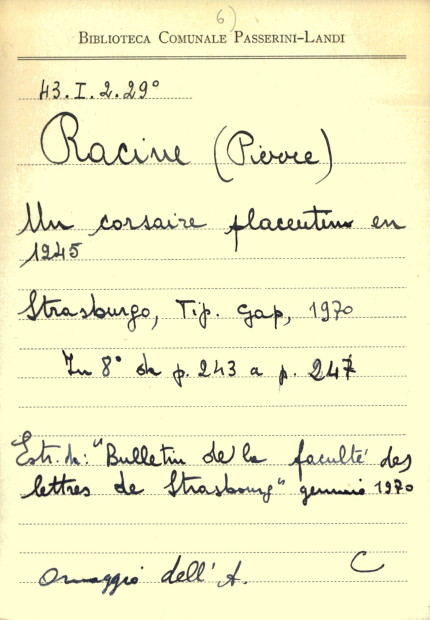 6)
BIBLIOTECA COMUNALE PASSERINI-LANDI
43.I.2.29°
Racine (Pierre)
Un corsaire placentin en
1245
Strasburgo, Tip. Gap, 1970
In 8° da p. 243 a p. 247
Estr. da: "Bulletin de la faculté des
lettres de Strasbourg" gennaio 1970
Omaggio dell'A. C